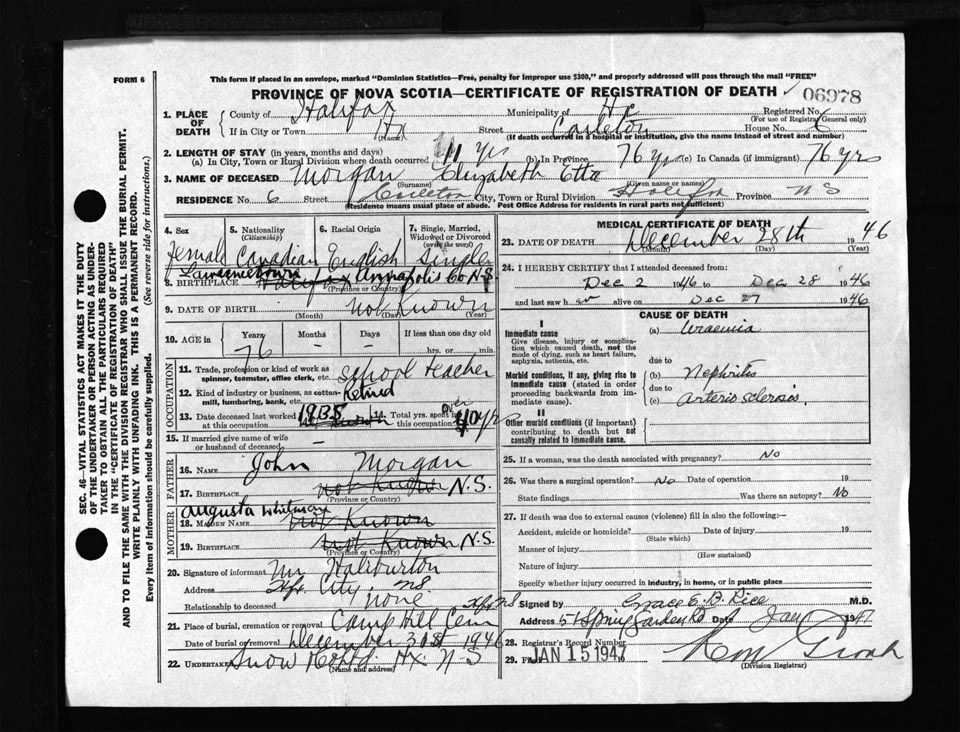 FORM 6
This form if placed in an envelope, marked "Dominion Statistics—Free, penalty for improper use $300," and properly addressed will pass through the mail "FREE"
PROVINCE OF NOVA SCOTIA—CERTIFICATE OF REGISTRATION OF DEATH
06978
1. PLACE OF DEATH
County of Halifax Municipality of Registered No.
(For use of Registrar General only)
If in City or Town Hx (Name) Street Carleton House No. 6
(If death occurred in a hospital or institution, give the name instead of street and number)
2. LENGTH OF STAY (in years, months and days)
(a) In City, Town or Rural Division where death occurred 41 yrs (b) In Province 76 yrs (c) In Canada (if immigrant) 76 yrs
3. NAME OF DECEASED Morgan Elizabeth Etta
(Surname) (Given name or names)
RESIDENCE No. 6 Street Carleton City, Town or Rural Division Halifax Province N S
(Residence means usual place of abode. Post Office Address for residents in rural parts not sufficient)
4. Sex 5. Nationality (Citizenship) 6. Racial Origin 7. Single, Married, Widowed or Divorced (write the word)
Female Canadian English Single
Lawrencetown
8. BIRTHPLACE Halifax Annapolis Co N.S.
(Province or Country)
9. DATE OF BIRTH not Known
(Month) (Day) (Year)
10. AGE in Years Months Days If less than one day old
76 – – hrs. or min.
OCCUPATION
11. Trade, profession or kind of work as spinner, teamster, office clerk, etc. School teacher
12. Kind of industry or business, as cotton-mill, lumbering, bank, etc. Retired
13. Date deceased last worked at this occupation 1938 14. Total yrs. spent over 40 yrs
15. If married give name of wife or husband of deceased –
FATHER
16. NAME John Morgan
17. BIRTHPLACE not Known N.S.
(Province or Country)
MOTHER
Augusta Whitman
18. MAIDEN NAME not Known
19. BIRTHPLACE not Known N.S.
(Province or Country)
20. Signature of informant Haliburton
Address Hfx. City. N.S.
Relationship to deceased None
21. Place of burial, cremation or removal Camp Hill Cem Hfx N S
Date of burial or removal December 31st 1946
22. Undertaker Snow Hx. N S
(Name and address)
MEDICAL CERTIFICATE OF DEATH
23. DATE OF DEATH December 28th 1946
(Month) (Day)
24. I HEREBY CERTIFY that I attended deceased from:
Dec 2 1946 to Dec 28 1946
and last saw h alive on Dec 27 1946
CAUSE OF DEATH
I
Immediate cause
Give disease, injury or complication which caused death, not the mode of dying, such as heart failure, asphyxia, asthenia, etc.
(a) Uraemia
due to
Morbid conditions, if any, giving rise to immediate cause (stated in order proceeding backwards from immediate cause).
(b) Nephritis
due to
(c) Arterio sclerosis.
II
Other morbid conditions (if important) contributing to death but not causally related to immediate cause.
25. If a woman, was the death associated with pregnancy? No
26. Was there a surgical operation? No Date of operation 19
State findings Was there an autopsy? No
27. If death was due to external causes (violence) fill in also the following:—
Accident, suicide or homicide? Date of injury 19
(State which)
Manner of injury
(How sustained)
Nature of injury
Specify whether injury occurred in industry, in home, or in public place
Signed by Grace E. B. Rice M.D.
Address 51 Spring Garden Rd Date Jan 1947
28. Registrar's Record Number
29. Filed JAN 15 1947
(Division Registrar)
SEC. 46—VITAL STATISTICS ACT MAKES IT THE DUTY
OF THE UNDERTAKER OR PERSON ACTING AS UNDERTAKER TO OBTAIN ALL THE PARTICULARS REQUIRED
IN THE "CERTIFICATE OF REGISTRATION OF DEATH"
AND TO FILE THE SAME WITH THE DIVISION REGISTRAR WHO SHALL ISSUE THE BURIAL PERMIT.
WRITE PLAINLY WITH UNFADING INK. THIS IS A PERMANENT RECORD.
Every item of information should be carefully supplied. (See reverse side for instructions.)